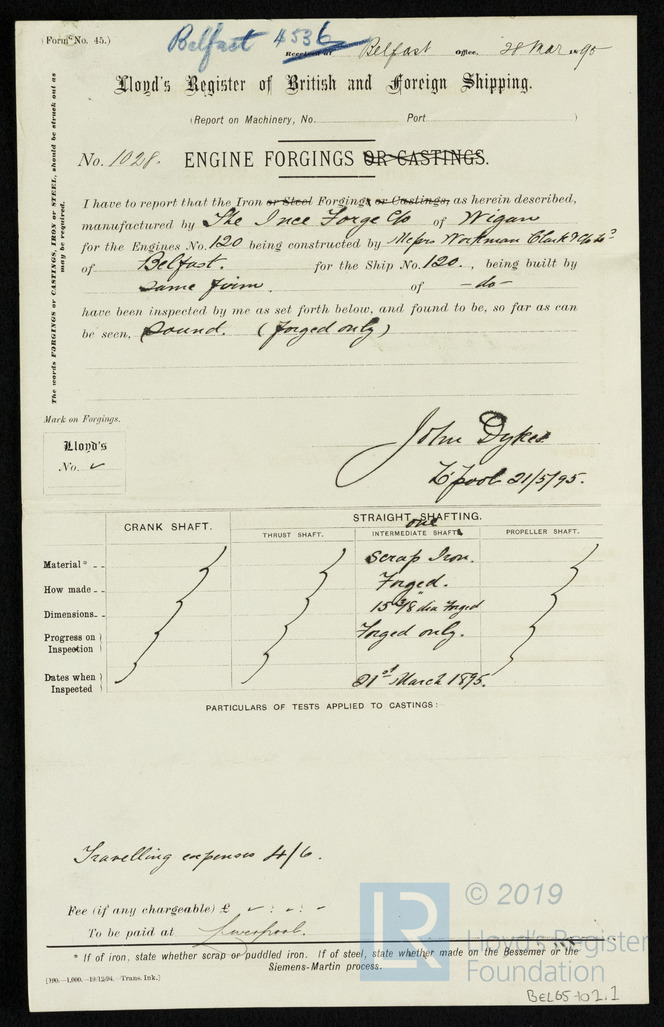 (Form No. 45.)
Belfast 4536
Received at Belfast Office, 28 Mar 1895
Lloyd's Register of British and Foreign Shipping.
(Report on Machinery, No. Port )
No. 1028. ENGINE FORGINGS OR CASTINGS.
The words FORGINGS or CASTINGS, IRON or STEEL, should be struck out as
may be required.
I have to report that the Iron or Steel Forgings or Castings, as herein described,
manufactured by The Ince Forge Co of Wigan
for the Engines No. 120 being constructed by Messrs Workman Clark & Co Ld
of Belfast. for the Ship No. 120., being built by
same firm. of -do-
have been inspected by me as set forth below, and found to be, so far as can
be seen, Sound. (forged only)
Mark on Forgings.
Lloyd's
No. ✓
John Dykes
L'pool 21/5/95.
CRANK SHAFT. STRAIGHT SHAFTING.
THRUST SHAFT. one INTERMEDIATE SHAFTS. PROPELLER SHAFT.
Material* Scrap Iron.
How made Forged.
Dimensions 15 3/8" dia Forged
Progress on Inspection Forged only.
Dates when Inspected 21st March 1895.
PARTICULARS OF TESTS APPLIED TO CASTINGS:
Travelling expenses 4/6.
Fee (if any chargeable) £ - : - : -
To be paid at Liverpool.
* If of iron, state whether scrap or puddled iron. If of steel, state whether made on the Bessemer or the
Siemens-Martin process.
[190.—1,000.—19/12/94.—Trans. Ink.]
LR
© 2019
Lloyd's Register
Foundation
BEL65-102.1